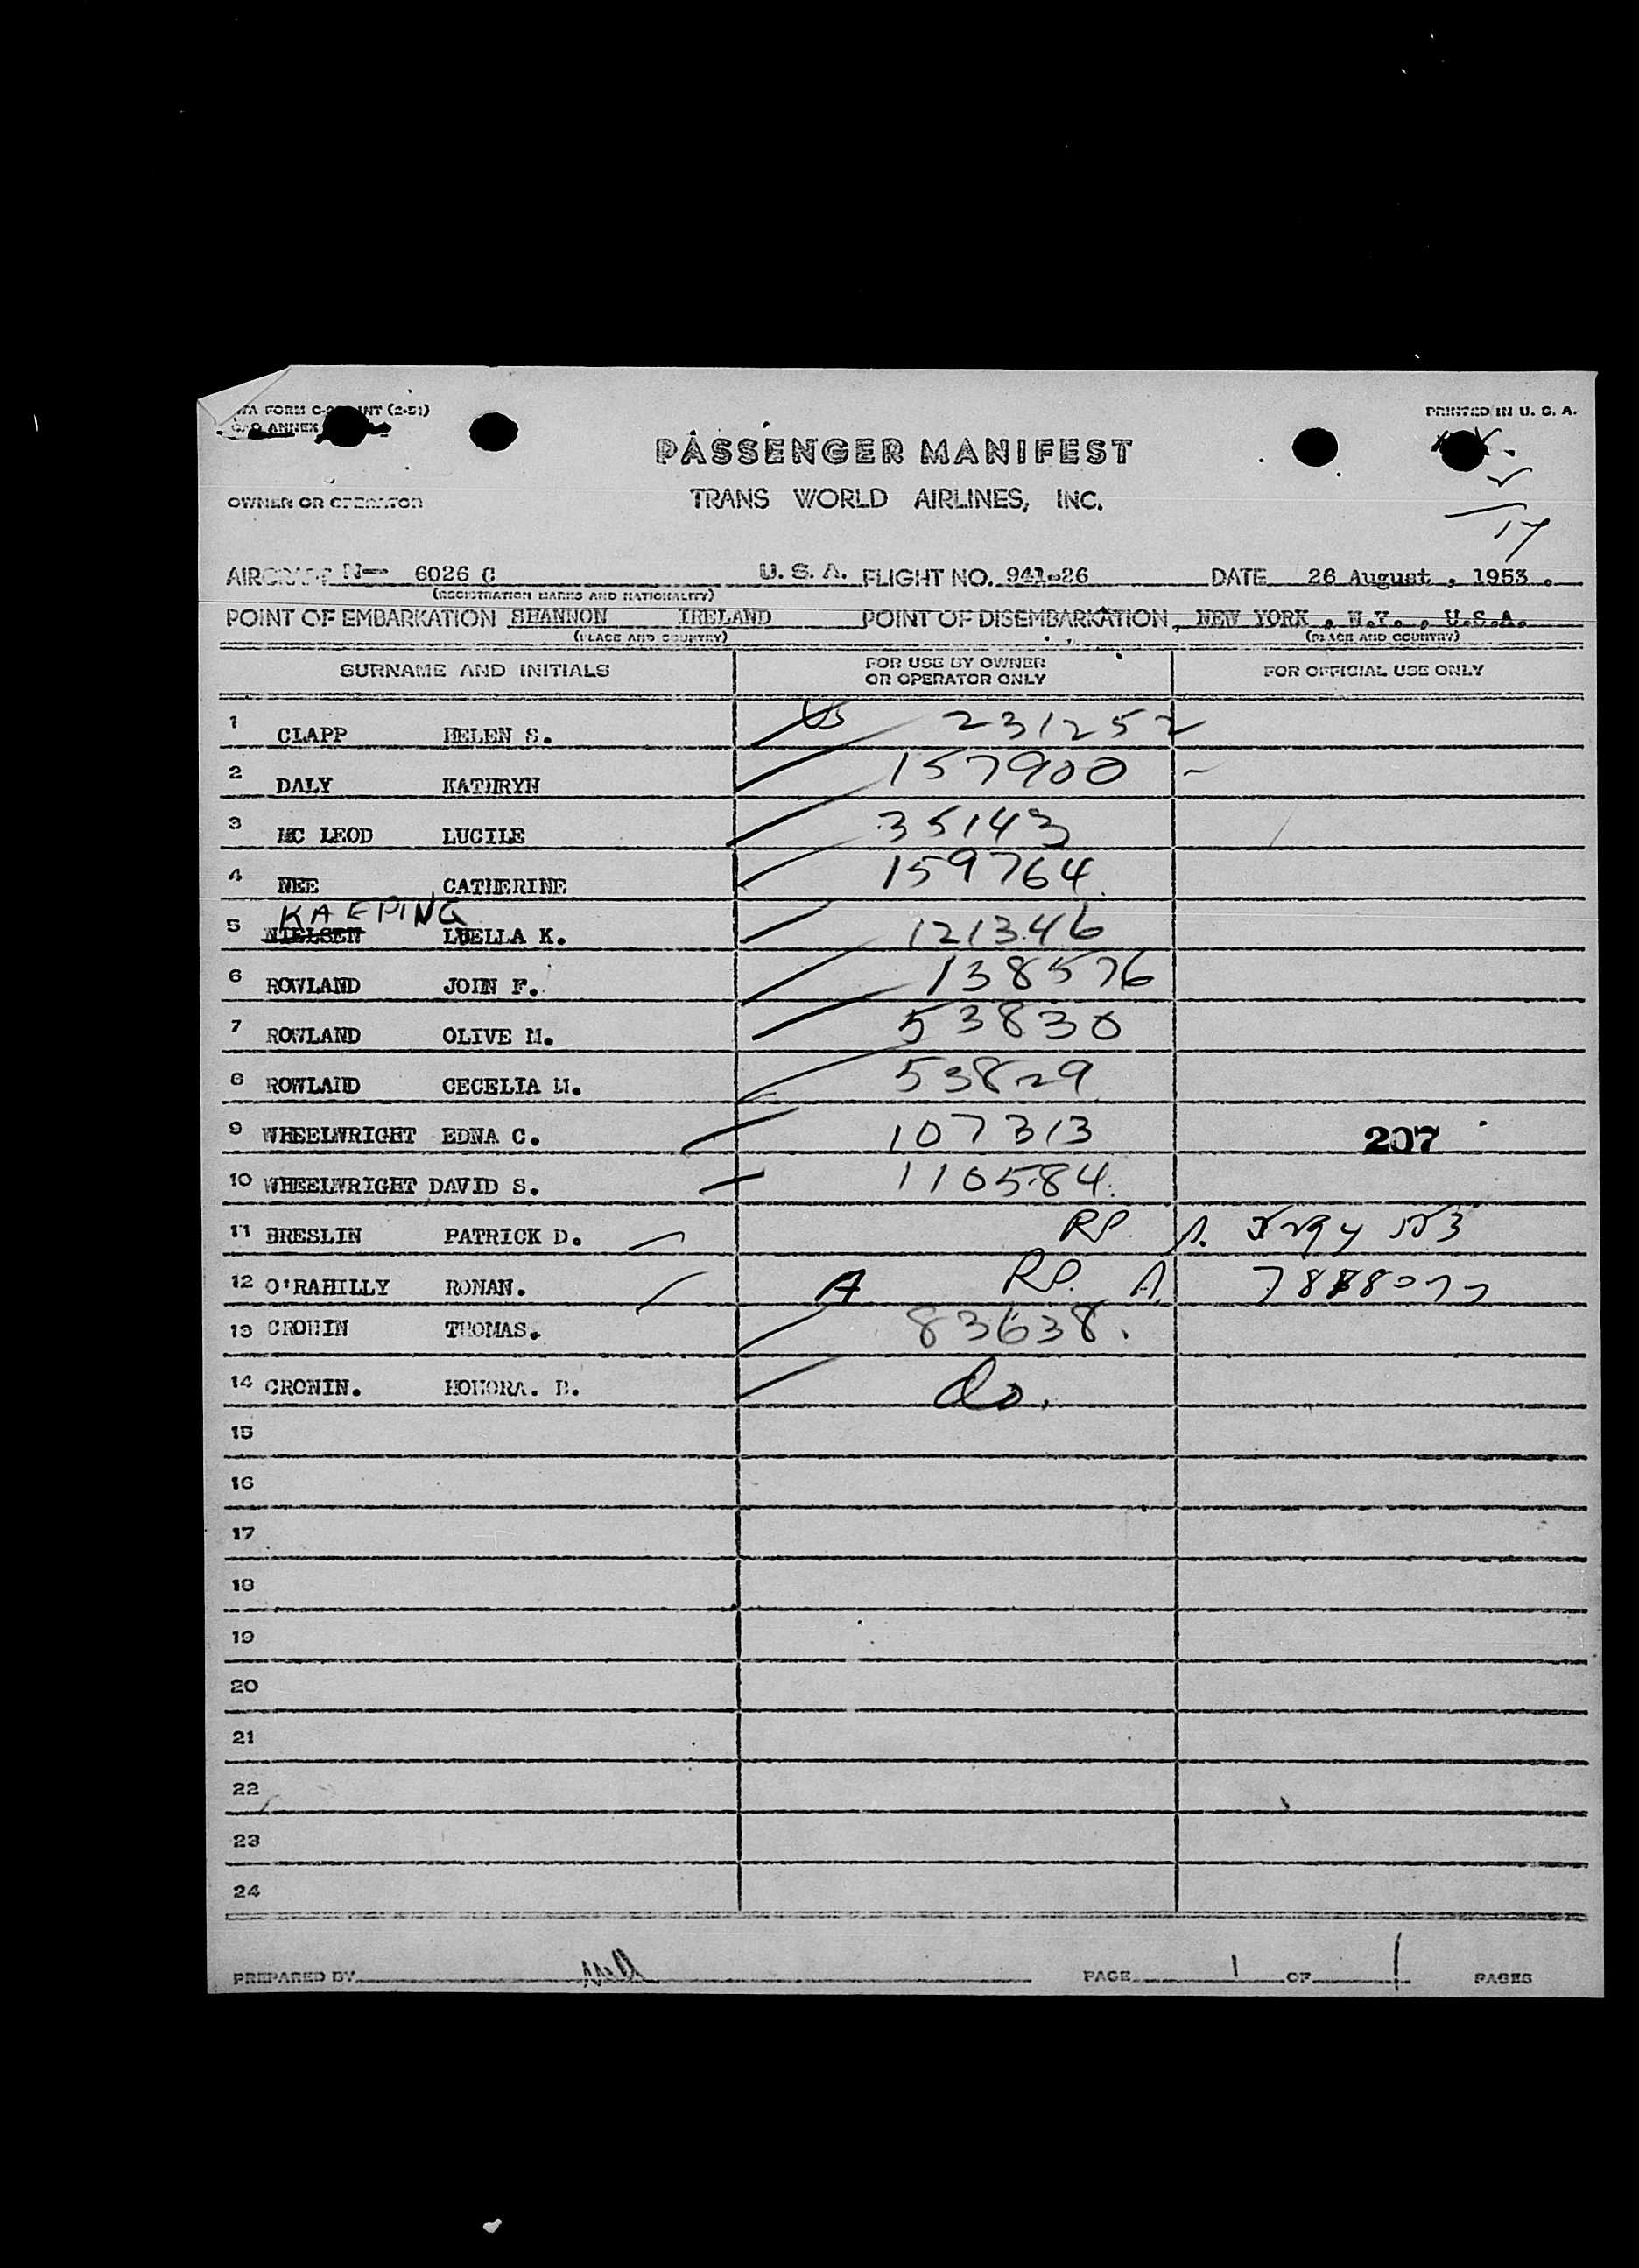 TWA FORM C-2 INT (2-51) PRINTED IN U. S. A.
CAO ANNEX
PASSENGER MANIFEST
OWNER OR OPERATOR TRANS WORLD AIRLINES, INC.
17
AIRCRAFT N- 6026 C U. S. A. FLIGHT NO. 941-26 DATE 26 August , 1953 .
(REGISTRATION MARKS AND NATIONALITY)
POINT OF EMBARKATION SHANNON IRELAND POINT OF DISEMBARKATION NEW YORK , N.Y. , U.S.A.
(PLACE AND COUNTRY) (PLACE AND COUNTRY)
SURNAME AND INITIALS FOR USE BY OWNER OR OPERATOR ONLY FOR OFFICIAL USE ONLY
1 CLAPP HELEN S. US 231252
2 DALY KATHRYN 157900 -
3 MC LEOD LUCILE 35143
4 NEE CATHERINE 159764
KAEPING
5 NIELSEN LUELLA K. 121346
6 ROWLAND JOHN F. 138576
7 ROWLAND OLIVE M. 53830
8 ROWLAND CECELIA M. 53829
9 WHEELWRIGHT EDNA C. 107313 207
10 WHEELWRIGHT DAVID S. 110584
11 BRESLIN PATRICK D. RP. A.
12 O'RAHILLY RONAN. A RP. A. 7888077
13 CRONIN THOMAS. 83638.
14 CRONIN. HONORA. B. do.
15
16
17
18
19
20
21
22
23
24
PREPARED BY PAGE 1 OF 1 PAGES